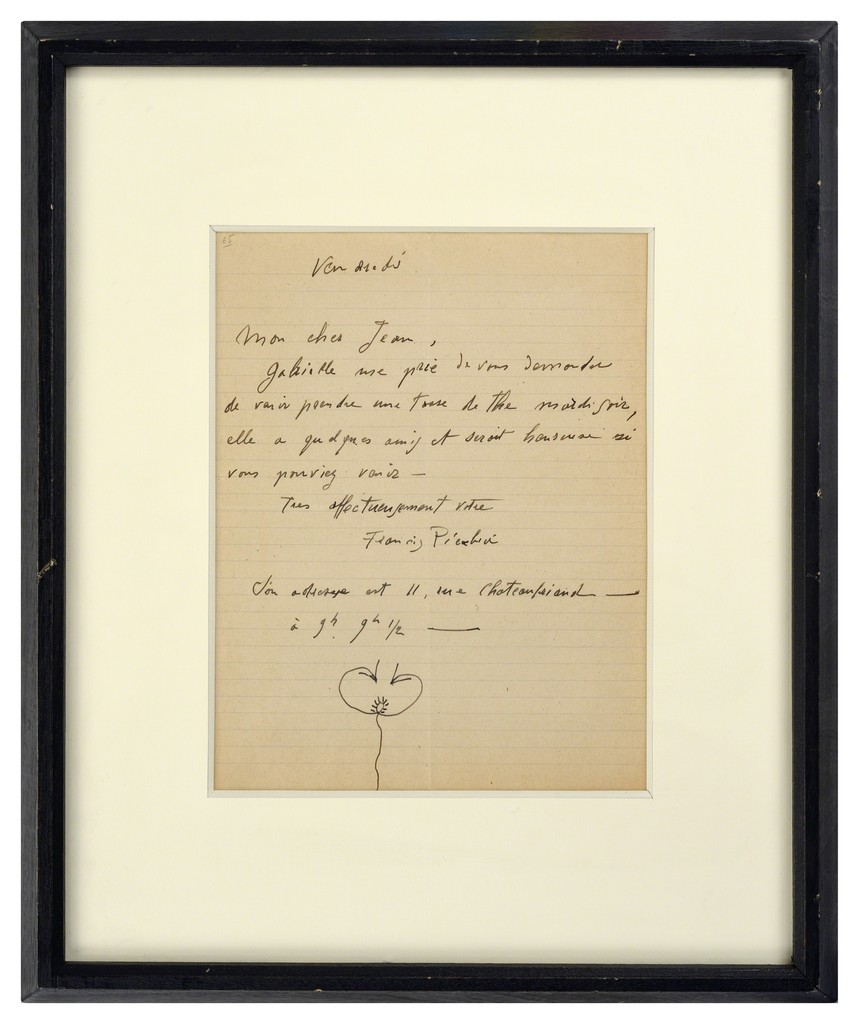 65
Vendredi
Mon cher Jean,
Gabrielle me prie de vous demander
de venir prendre une tasse de thé mardi soir,
elle a quelques amis et serait heureuse si
vous pouviez venir —
Très affectueusement votre
Francis Picabia
Son adresse est 11, rue Chateaubriand —
à 9h. 9h 1/2 —